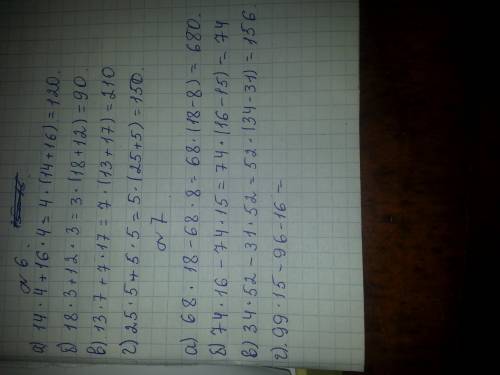 № 6.
а) 14·4+16·4=4·(14+16)=120.
б) 18·3+12·3=3·(18+12)=90.
в) 13·7+7·17=7·(13+17)=210
г) 25·5+5·5=5·(25+5)=150.
№ 7
а) 68·18-68·8=68·(18-8)=680.
б) 74·16-74·15=74·(16-15)=74
в) 34·52-31·52=52·(34-31)=156.
г). 99·15-96-16=